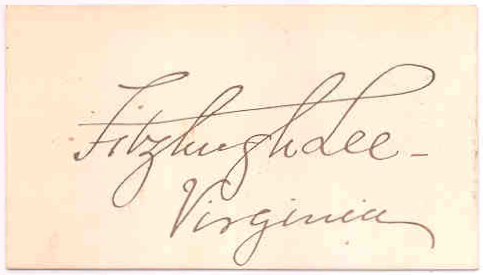 Fitzhugh Lee -
Virginia